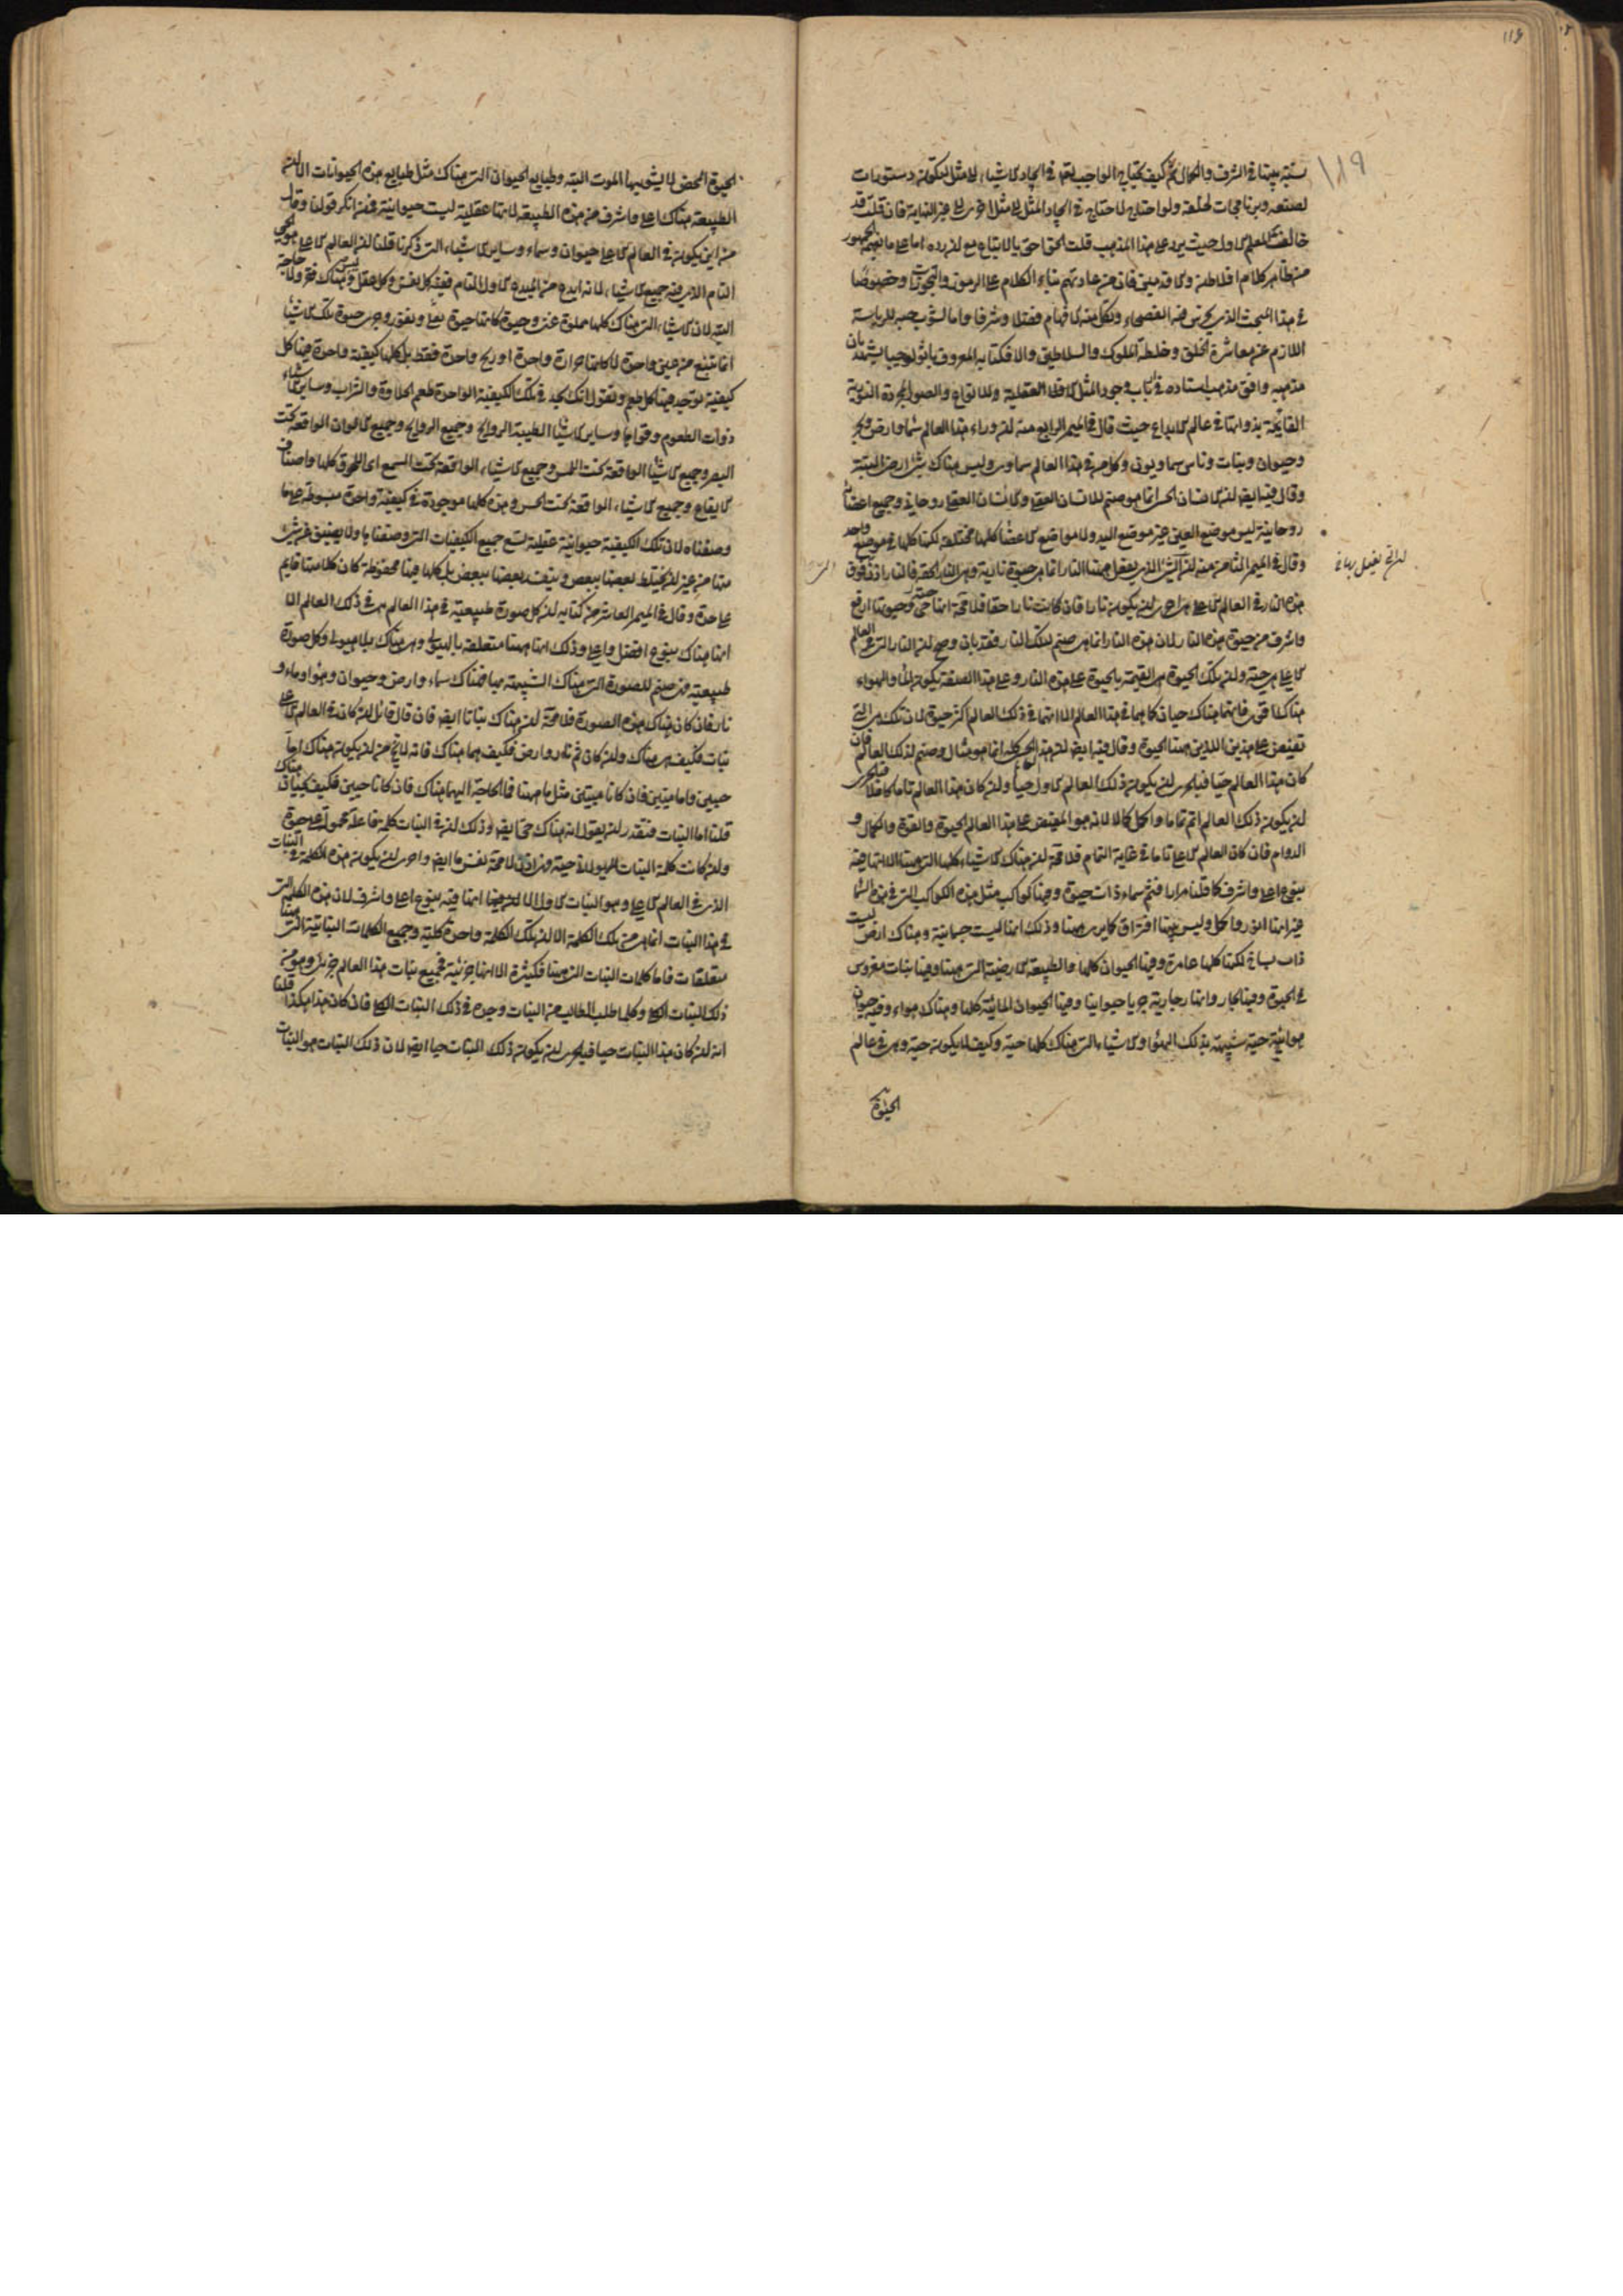 نسبة بينهما في الشرف والكمال ثم كيف يحتاج الواجب تعالى في ايجاد الاشياء الى مثل ليكون دستورات
لصنعه وبرنامجات لخلقه ولو احتاج لاحتاج في ايجاد المثل الى مثل اخرى الى غير النهاية فان قلت قد
خالفت المعلم الاول حيث يرد على هذا المذهب قلت الحق احق بالاتباع مع ان رده اما على ما يفهمه الجمهور
من ظاهر كلام افلاطن والاقدمين فان من عادتهم بناء الكلام على الرموز والتجوزات وخصوصا
في هذا المبحث الذي يخرس فيه الفصحاء وتكل منه الافهام فضلا وشرفا واما لشوب حبه للرياسة
اللازم عن معاشرة الخلق وخلطة الملوك والسلاطين والا فكتابه المعروف باثولوجيا يشهد بان
مذهبه وافق مذهب استاده في باب وجود المثل العقلية للانواع والصور المجردة النورية
القائمة بذواتها في عالم الابداع حيث قال في الميمر الرابع منه ان وراء هذا العالم سماء وارض وبحر
وحيوان ونبات وناس سماويون وكل من في هذا العالم سماوي وليس هناك شيء ارضي البتة
وقال فيه ايضا ان الانسان الحسي انما هو صنم للانسان العقلي والانسان العقلي روحاني وجميع اعضائه
روحانية ليس موضع العين غير موضع اليد ولا مواضع الاعضاء كلها مختلفة لكنها كلها في موضع واحد
وقال في الميمر الثامن منه ان الشيء الذي يفعل ههنا النار انما هي حيوة نارية وهي النار الحقة فالنار اذن فوق
هذه النار في العالم الاعلى هي احرى ان يكون نارا فان كانت نارا حقا فلا محة انها حي وحيوتها ارفع
واشرف من حيوة هذه النار لان هذه النار انما هي صنم لتلك النار فقد بان وصح ان النار التي في العالم
الاعلى هي حية وان تلك الحيوة هي القيمة بالحيوة على هذه النار وعلى هذه الصفة يكون الماء والهواء
هناك اقوى فانهما هناك حيان كما هما في هذا العالم الا انهما في ذلك العالم اكثر حيوة لان تلك هي التي
تفيض على هذين اللذين ههنا الحيوة وقال فيه ايضا ان هذا العالم الحسي كله انما هو مثال وصنم لذلك العالم فان
كان هذا العالم حيا فبالحرى ان يكون ذلك العالم الاول حيا وان كان هذا العالم تاما كاملا فبالحرى
ان يكون ذلك العالم اتم تماما واكمل كمالا لانه هو المفيض على هذا العالم الحيوة والقوة والكمال و
الدوام فان كان العالم الاعلى تاما في غاية التمام فلا محة ان هناك الاشياء كلها التي ههنا الا انها فيه
بنوع اعلى واشرف كما قلنا مرارا فثم سماء ذات حيوة وفيها كواكب مثل هذه الكواكب التي في هذه السماء
غير انها انور واكمل وليس بينها افتراق كما يرى ههنا وذلك انها ليست جسمانية وهناك ارض ليست
ذات سباخ لكنها كلها عامرة وفيها الحيوان كلها والطبيعة الارضية التي ههنا وفيها نبات مغروس
في الحيوة وفيها بحار وانهار جارية جريا حيوانيا وفيها الحيوان المائية كلها وهناك هواء وفيه حيوان
هوائية حية شبيهة بذلك الهواء والاشياء التي هناك كلها حية وكيف لا يكون حية وهي في عالم
الحيوة
الحيوة المحض لا يشوبها الموت البتة وطبايع الحيوان التي هناك مثل طبايع هذه الحيوانات الا ان
الطبيعة هناك اعلى واشرف من هذه الطبيعة لانها عقلية ليست حيوانية فمن انكر قولنا وقال
من اين يكون في العالم الاعلى حيوان وسماء وساير الاشياء التي ذكرنا قلنا ان العالم الاعلى هو الحي
التام الذي فيه جميع الاشياء لانه ابدع من المبدع الاول التام ففيه كل نفس وكل عقل وليس هناك فقر ولا حاجة
البتة لان الاشياء التي هناك كلها مملوة غنى وحيوة كانها حيوة تغلى وتفور وجرى حيوة تلك الاشياء
انما تنبع من عين واحدة لا كانها حرارة واحدة او ريح واحدة فقط بل كلها كيفية واحدة فيها كل
كيفية يوجد فيها كل طعم ونقول انك تجد في تلك الكيفية الواحدة طعم الحلاوة والشراب وساير الاشياء
ذوات الطعوم وقواها وساير الاشياء الطيبة الروايح وجميع الروايح وجميع الالوان الواقعة تحت
البصر وجميع الاشياء الواقعة تحت اللمس وجميع الاشياء الواقعة تحت السمع اي اللحون كلها واصناف
الايقاع وجميع الاشياء الواقعة تحت الحس وهذه كلها موجودة في كيفية واحدة مبسوطة على ما
وصفناه لان تلك الكيفية حيوانية عقلية تسع جميع الكيفيات التي وصفناها ولا يضيق عن شيء
منها من غير ان يختلط بعضها ببعض وينفسد بعضها ببعض بل كلها فيها محفوظة كان كلا منها قايم
على حدة وقال في الميمر العاشر من كتابه ان كل صورة طبيعية في هذا العالم هي في ذلك العالم الا
انها هناك بنوع افضل واعلى وذلك انها ههنا متعلقة بالهيولى وهي هناك بلا هيولى وكل صورة
طبيعية فهي صنم للصورة التي هناك الشبيهة بها فهناك سماء وارض وحيوان وهواء وماء و
نار فان كان هناك هذه الصورة فلا محة ان هناك نباتا ايضا فان قال قائل ان كان في العالم الاعلى
نبات فكيف هي هناك وان كان ثم نار وارض فكيف هما هناك فانه لا يخ من ان يكون هناك اما
حيين واما ميتين فان كانا ميتين مثل ما ههنا فما الحاجة اليهما هناك فان كانا حيين فكيف يحييان هناك
قلنا اما النبات فنقدر ان نقول انه هناك حي ايضا وذلك ان في النبات كلمة فاعلة محمولة على حيوة
وان كانت كلمة النبات الهيولانية حية فهي اذن لا محة نفس ما ايضا واحرى ان يكون هذه الكلمة في النبات
الذي في العالم الاعلى وهو النبات الاول الا انها فيه بنوع اعلى واشرف لان هذه الكلمة التي
في هذا النبات انما هي من تلك الكلمة الا ان تلك الكلمة واحدة كلية وجميع الكلمات النباتية التي ههنا
متعلقات فاما كلمات النبات التي ههنا فكثيرة الا انها جزئية فجميع نبات هذا العالم جزئي وهو من
ذلك النبات الكلي وكلما طلب الطالب من النبات وجده في ذلك النبات الكلي فان كان هذا هكذا قلنا
انه ان كان هذا النبات حيا فبالحرى ان يكون ذلك النبات حيا ايضا لان ذلك النبات هو النبات